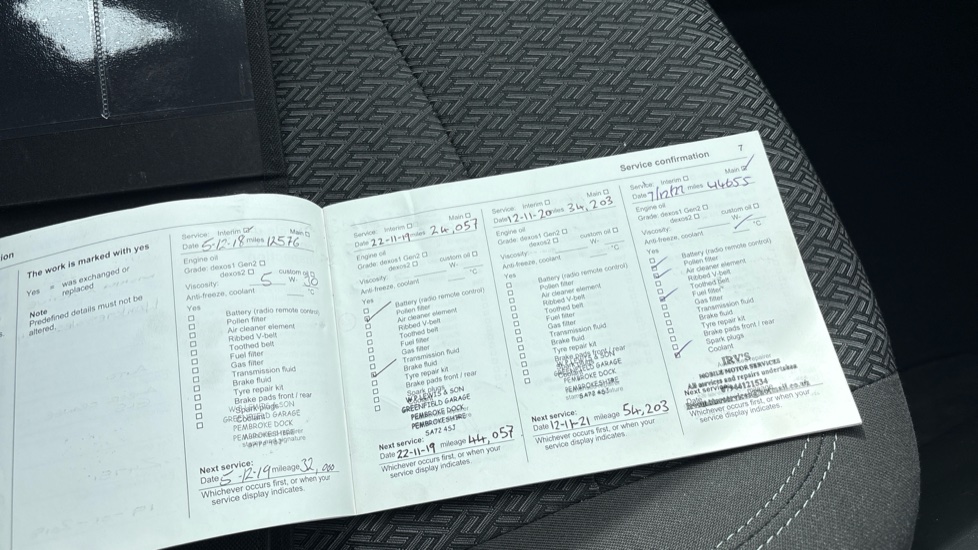 Service confirmation 7
The work is marked with yes
Yes = was exchanged or
replaced
Note
Predefined details must not be
altered.
Service: Interim Main
Date 5-12-18 miles 12576
Engine oil
Grade: dexos1 Gen2
dexos2 custom oil
Viscosity: 5 W- 30
Anti-freeze, coolant °C
Yes
Battery (radio remote control)
Pollen filter
Air cleaner element
Ribbed V-belt
Toothed belt
Fuel filter
Gas filter
Transmission fluid
Brake fluid
Tyre repair kit
Brake pads front / rear
GREENFIELD GARAGE
PEMBROKE DOCK
PEMBROKESHIRE
Next service:
Date 5-12-19 mileage 32,000
Whichever occurs first, or when your
service display indicates.
Service: Interim Main
Date 22-11-19 miles 24,057
Engine oil
Grade: dexos1 Gen2
dexos2 custom oil
Viscosity: W-
Anti-freeze, coolant °C
Yes
Battery (radio remote control)
Pollen filter
Air cleaner element
Ribbed V-belt
Toothed belt
Fuel filter
Gas filter
Transmission fluid
Brake fluid
Tyre repair kit
Brake pads front / rear
Spark plugs
W.R. LEWIS & SON
GREENFIELD GARAGE
PEMBROKE DOCK
PEMBROKESHIRE
SA72 4SJ
Next service:
Date 22-11-19 mileage 44,057
Whichever occurs first, or when your
service display indicates.
Service: Interim Main
Date 12-11-20 miles 34,203
Engine oil
Grade: dexos1 Gen2
dexos2 custom oil
Viscosity: W-
Anti-freeze, coolant °C
Yes
Battery (radio remote control)
Pollen filter
Air cleaner element
Ribbed V-belt
Toothed belt
Fuel filter
Gas filter
Transmission fluid
Brake fluid
Tyre repair kit
Brake pads front / rear
GREENFIELD GARAGE
PEMBROKE DOCK
PEMBROKESHIRE
SA72 4SJ
Next service:
Date 12-11-21 mileage 54,203
Whichever occurs first, or when your
service display indicates.
Service: Interim Main
Date 7/12/21 miles 44655
Engine oil
Grade: dexos1 Gen2
dexos2 custom oil
Viscosity: W-
Anti-freeze, coolant °C
Yes
Battery (radio remote control)
Pollen filter
Air cleaner element
Ribbed V-belt
Toothed belt
Fuel filter
Gas filter
Transmission fluid
Brake fluid
Tyre repair kit
Brake pads front / rear
Spark plugs
Coolant
IRV'S
MOBILE MOTOR SERVICES
All services and repairs undertaken
07944121534
Next service:
Whichever occurs first, or when your
service display indicates.